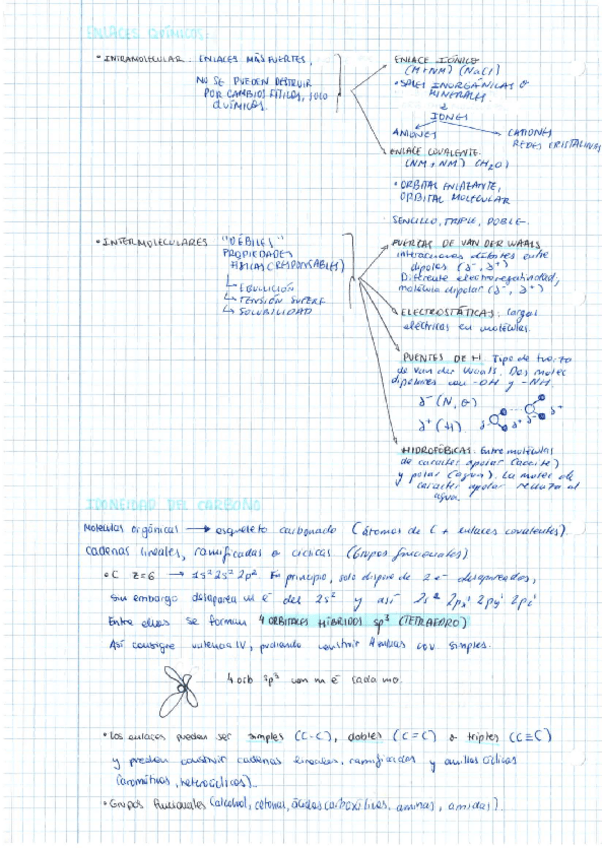 ENLACES QUÍMICOS:
• INTRAMOLECULAR. ENLACES MÁS FUERTES,
NO SE PUEDEN DESTRUIR
POR CAMBIOS FÍSICOS, SOLO
QUÍMICOS.
ENLACE IÓNICO
(M+NM) (NaCl)
• SALES INORGÁNICAS O
MINERALES
IONES
ANIONES
CATIONES
REDES CRISTALINAS
ENLACE COVALENTE.
(NM+NM) (H₂O)
• ORBITAL ENLAZANTE,
ORBITAL MOLECULAR
SENCILLO, TRIPLE, DOBLE.
• INTERMOLECULARES "DÉBILES"
PROPIEDADES
FÍSICAS (RESPONSABLES)
↳ EBULLICIÓN
↳ TENSIÓN SUPERF
↳ SOLUBILIDAD
FUERZAS DE VAN DER WAALS
interacciones débiles entre
dipolos (δ⁻, δ⁺)
Diferente electronegatividad,
molécula dipolar (δ⁻, δ⁺)
ELECTROSTÁTICAS: cargas
eléctricas en moléculas.
PUENTES DE H. Tipo de fuerza
de van der Waals. Dos molec
dipolares con -OH y -NH.
δ⁻ (N, O)
δ⁺ (H)
δ⁻ δ⁺ δ⁻ δ⁺
HIDROFÓBICAS. Entre moléculas
de carácter apolar (aceite)
y polar (agua). La molec de
carácter apolar rechaza al
agua.
IDONEIDAD DEL CARBONO
Moléculas orgánicas → esqueleto carbonado (átomos de C + enlaces covalentes).
cadenas lineales, ramificadas o cíclicas (Grupos funcionales)
• C Z=6 → 1s² 2s² 2p². En principio, solo dispone de 2 e⁻ desapareados,
sin embargo desaparea un é del 2s² y así 2s¹ 2px¹ 2py¹ 2pz¹
Entre ellos se forman 4 ORBITALES HÍBRIDOS sp³ (TETRAEDRO)
Así consigue valencia IV, pudiendo construir 4 enlaces cov simples.
4 orb sp³ con un é cada uno.
• Los enlaces pueden ser simples (C-C), dobles (C=C) o triples (C≡C)
y pueden construir cadenas lineales, ramificadas y anillos cíclicos
(aromáticos, heterocíclicos).
• Grupos funcionales (alcohol, cetonas, ácidos carboxílicos, aminas, amidas).